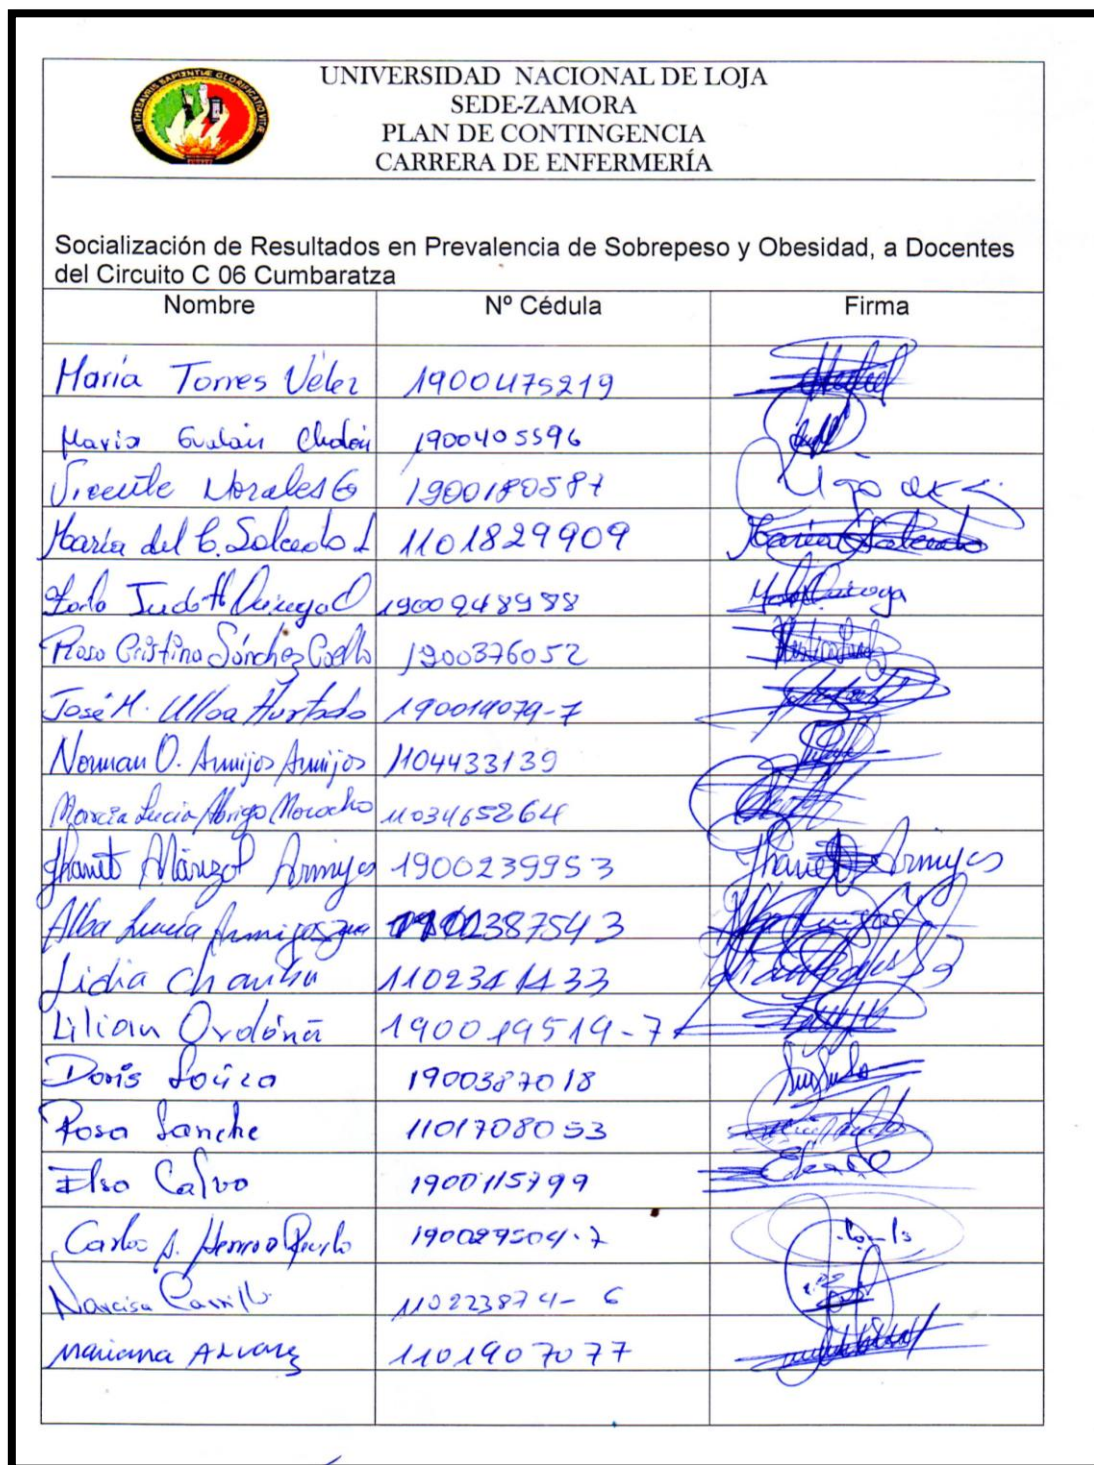 IN THESAURIS SAPIENTIAE GLORIFICATIO VITAE
UNIVERSIDAD NACIONAL DE LOJA
SEDE-ZAMORA
PLAN DE CONTINGENCIA
CARRERA DE ENFERMERÍA
Socialización de Resultados en Prevalencia de Sobrepeso y Obesidad, a Docentes
del Circuito C 06 Cumbaratza
Nombre Nº Cédula Firma
María Torres Vélez 1900475219
María Gualán 1900405596
Vicente Morales G 1900180587
María del C. Salcedo L 1101829909 María Salcedo
Judith 1900248988 Quiroga
Rosa Cristina Sánchez Coello 1900376052
José M. Ulloa Hurtado 190014079-7
Norman O. Armijos Armijos 1104433139
Marcia Lucia Abrigo Morocho 1103465264
Jhanet Marizol Armijos 1900239953 Jhanet Armijos
Alba Lucía Armijos 387543
Lidia 1102341433
Lilian Ordóñ 190019519-7
Doris 1900387018
Rosa Sanche 1101708053
Elsa Calvo 1900115799
Carlos A. Herrera 190029504-7
Narcisa Carrillo 110223874-6
Mariana ALvarez 1101907077